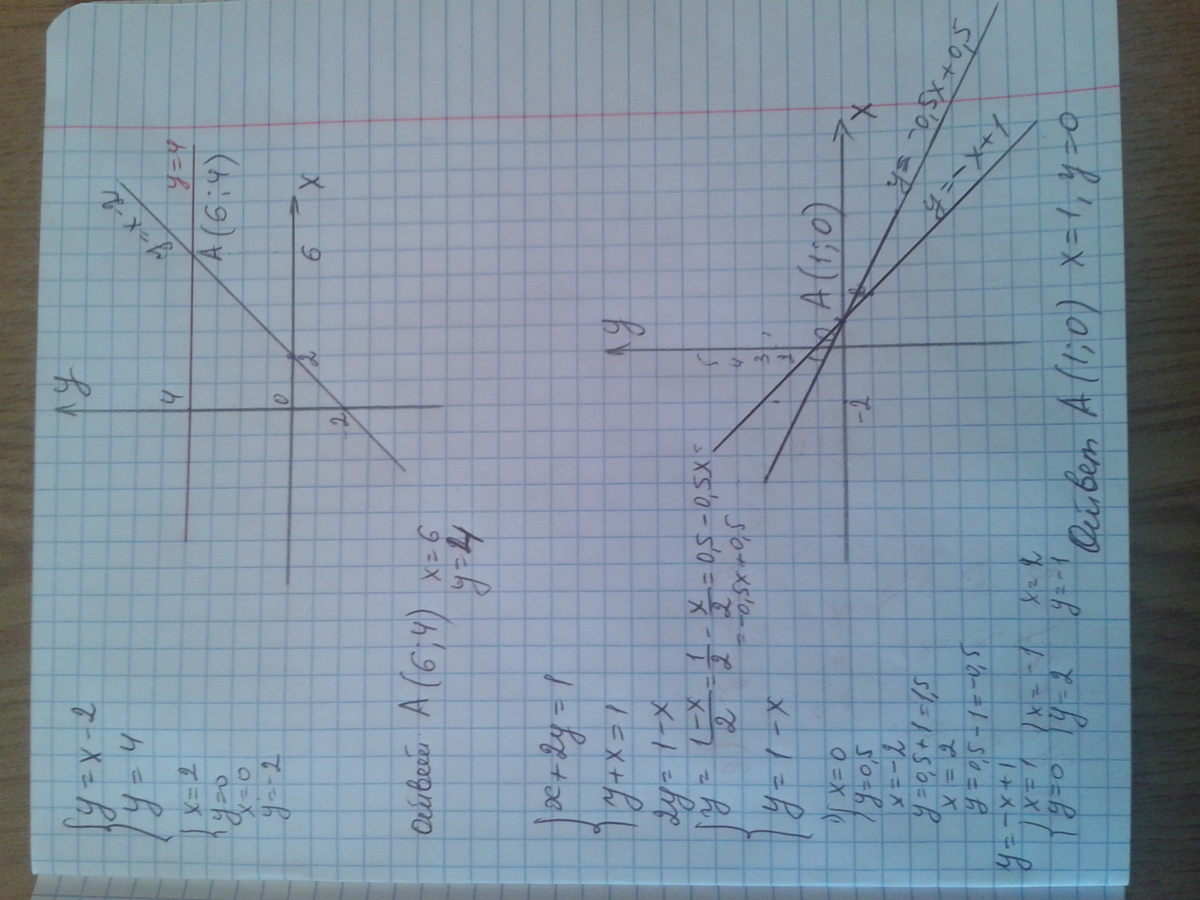 {y = x - 2
{y = 4
{x = 2
y = 0
x = 0
y = -2
y
4
0
2
-2
6
x
y = x - 2
y = 4
A (6; 4)
Ответ A (6; 4) x = 6
y = 4
{x + 2y = 1
{y + x = 1
2y = 1 - x
{y = \frac{1 - x}{2} = \frac{1}{2} - \frac{x}{2} = 0,5 - 0,5x =
= -0,5x + 0,5
{y = 1 - x
1) {x = 0
{y = 0,5
x = -2
y = 0,5 + 1 = 1,5
x = 2
y = 0,5 - 1 = -0,5
y = -x + 1
{x = 1 {x = -1 x = 2
{y = 0 {y = 2 y = -1
y
5
4
3
2
1
-2
x
A (1; 0)
y = -0,5x + 0,5
y = -x + 1
Ответ A (1; 0) x = 1, y = 0